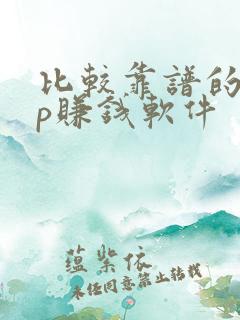 比較靠譜的
p賺錢軟件
蕴紫依
未经同意禁止转载